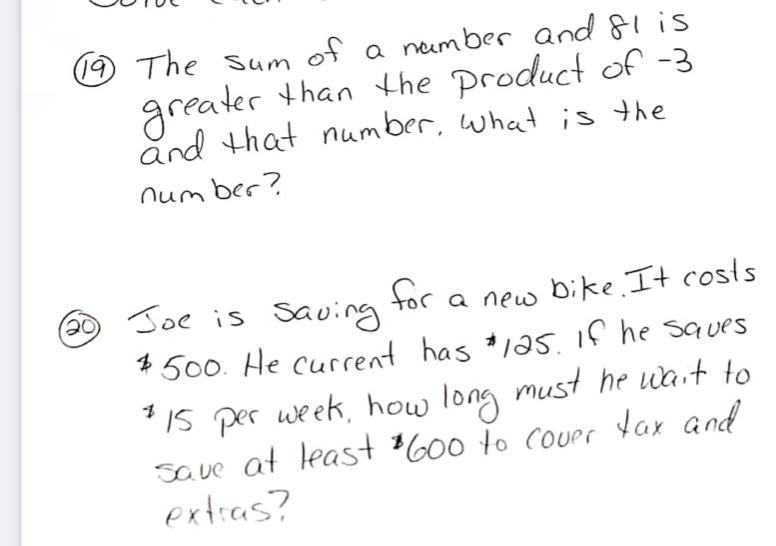 19 The sum of a number and 81 is
greater than the product of -3
and that number. What is the
number?
20 Joe is saving for a new bike. It costs
$500. He current has $125. If he saves
$15 per week, how long must he wait to
save at least $600 to cover tax and
extras?